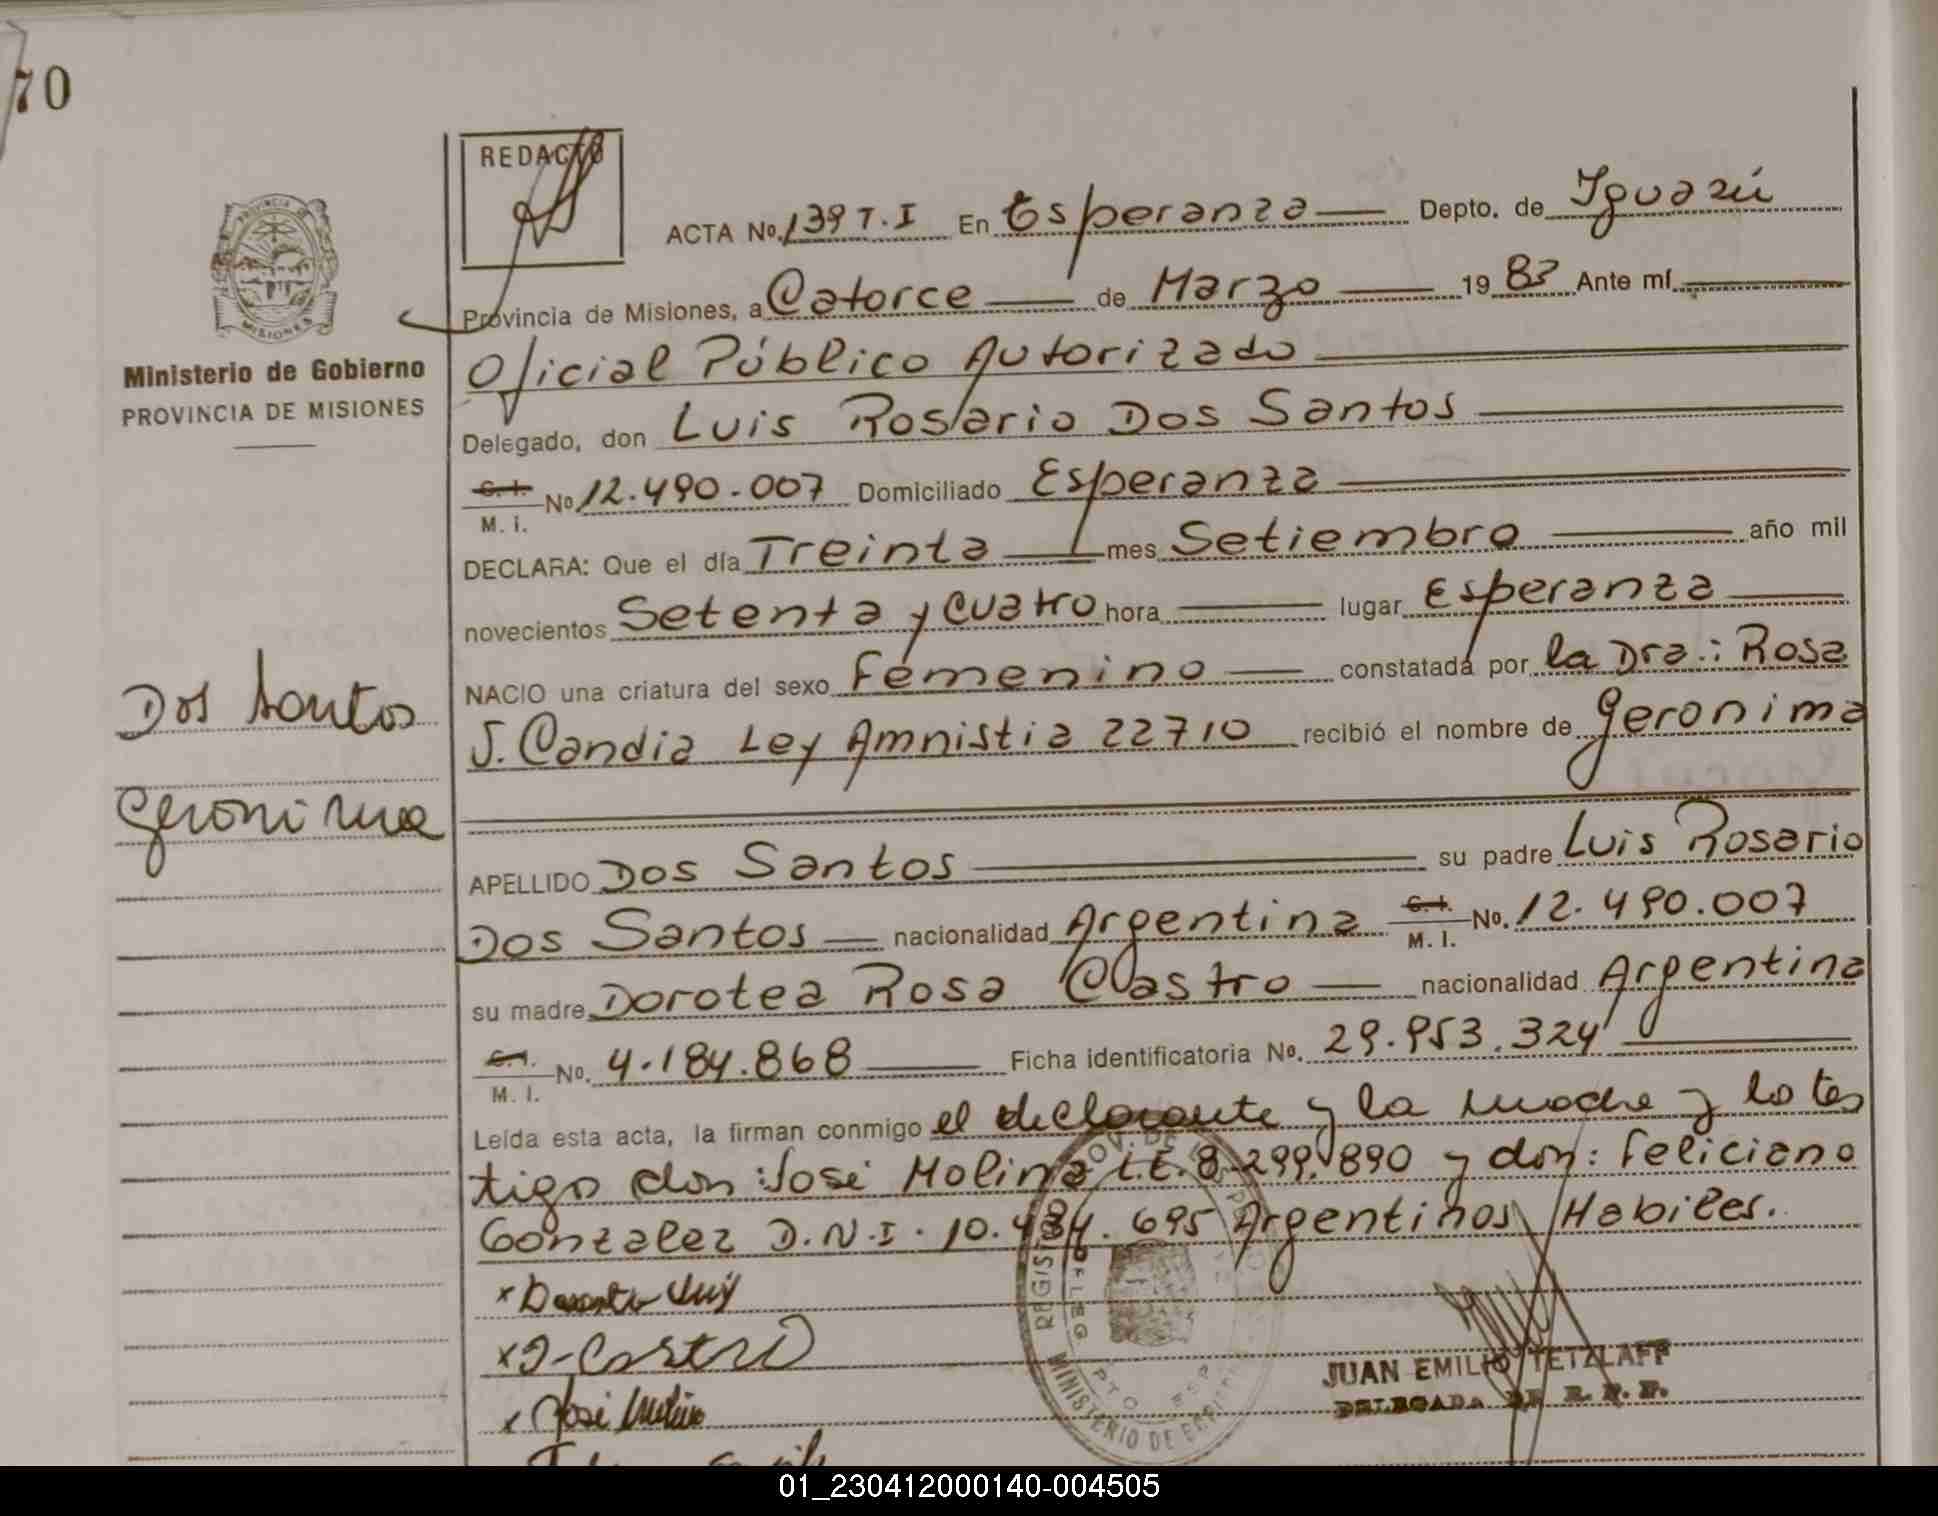 70
REDACTO
ACTA No. 139 T. I En Esperanza Depto. de Iguazú
PROVINCIA DE
MISIONES
Provincia de Misiones, a Catorce de Marzo 1983 Ante mí
Ministerio de Gobierno
PROVINCIA DE MISIONES
Oficial Público Autorizado
Delegado, don Luis Rosario Dos Santos
C. I. M. I. No 12.490.007 Domiciliado Esperanza
DECLARA: Que el día Treinta mes Setiembre año mil
novecientos Setenta y Cuatro hora lugar Esperanza
NACIO una criatura del sexo Femenino constatada por la Dra.: Rosa
J. Candia Ley Amnistia 22710 recibió el nombre de Geronima
Dos Santos
Geronima
APELLIDO Dos Santos su padre Luis Rosario
Dos Santos nacionalidad Argentina C. I. M. I. No. 12.490.007
su madre Dorotea Rosa Castro nacionalidad Argentina
C. I. M. I. No. 4.184.868 Ficha identificatoria No. 29.953.324
Leída esta acta, la firman conmigo el declarante y la madre y lo tes
tigo don: José Molina L.E. 8.299.890 y don: Feliciano
Gonzalez D.N.I. 10.434.695 Argentinos Habiles.
x Luis
x D-Castro
x José
JUAN EMILIO TETZLAFF
DELEGADA DE R. P. P.
MINISTERIO DE
01_230412000140-004505